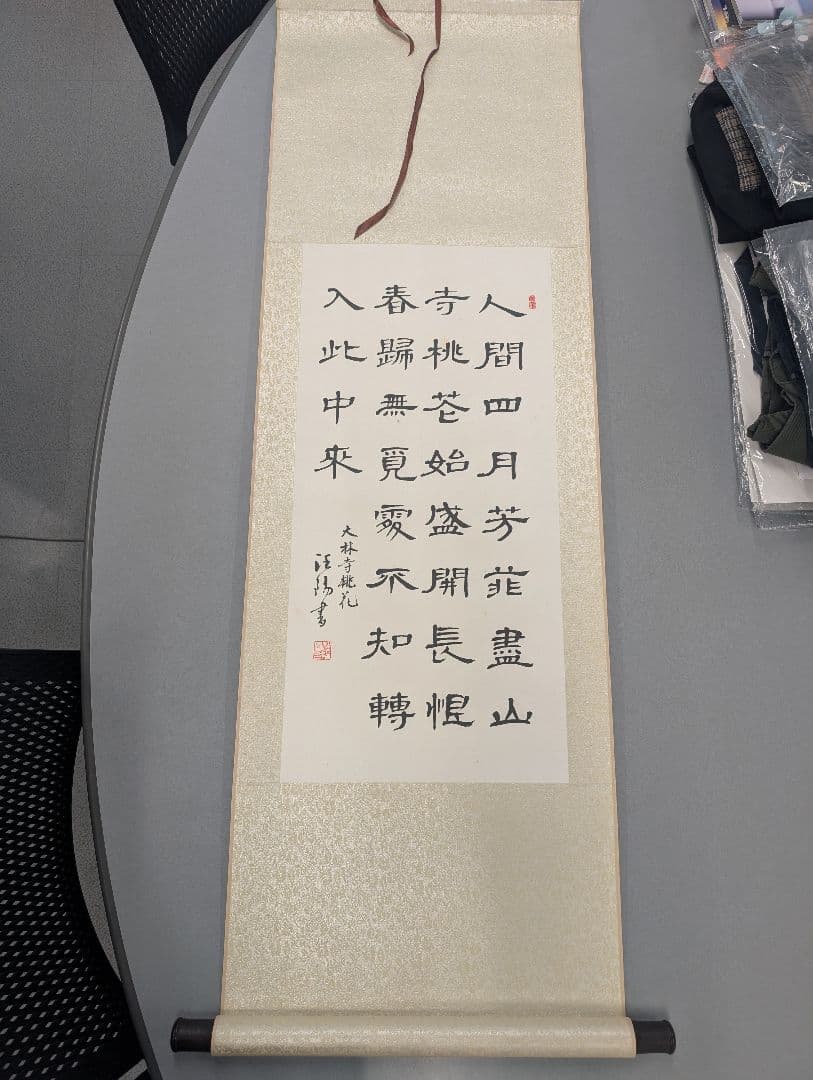 人間四月芳菲盡山
寺桃花始盛開長恨
春歸無覓處不知轉
入此中來
大林寺桃花
汪陽書